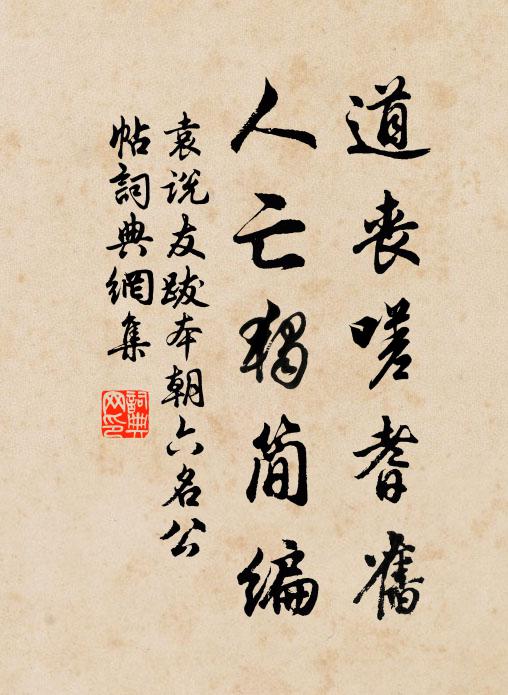 道丧嗟耆舊
人亡獨简编
袁说友跋本朝六名公
帖詞典網集
詞典網印